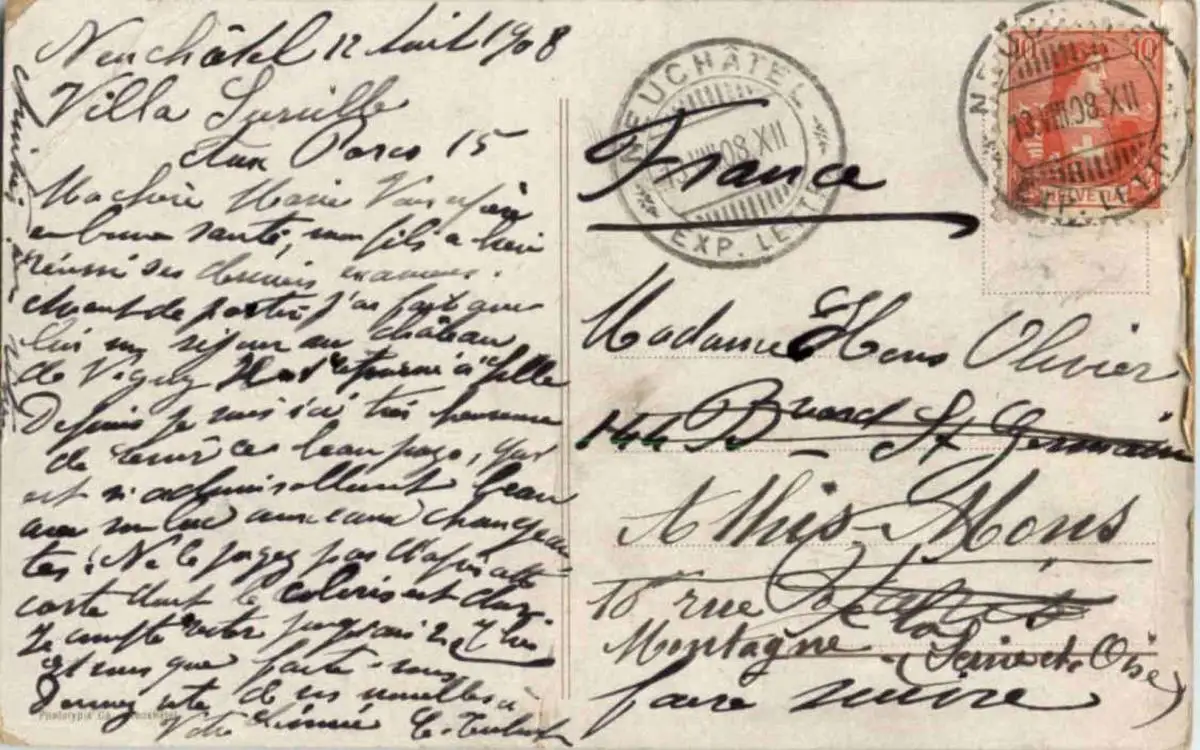 Neuchâtel 12 Août 1908
Villa Surville
aux Parcs 15
Ma chère Marie
en bonne santé, mon fils a bien
réussi ses derniers examens.
Avant de partir j'ai fait avec
lui un séjour au château
de Vigny
Depuis je suis ici très heureuse
de ce beau pays, qui
est si admirablement beau
avec son lac aux eaux changean-
tes. Ne le jugez pas d'après cette
carte dont le coloris est dur.
Je compte rester jusqu'au
et vous que faites-vous
Donnez vite de vos nouvelles à
Votre
Phototypie Co. Neuchâtel
NEUCHÂTEL
VIII 08 XII
EXP. LETTR.
France
10 10
HELVETIA
NEUCHÂTEL
13 VIII 08 XII
EXP. LETTR.
Madame Hons Olivier
144 B Bvard St Germain
Athis-Mons
18 rue de la
Montagne (Seine et Oise)
faire suivre